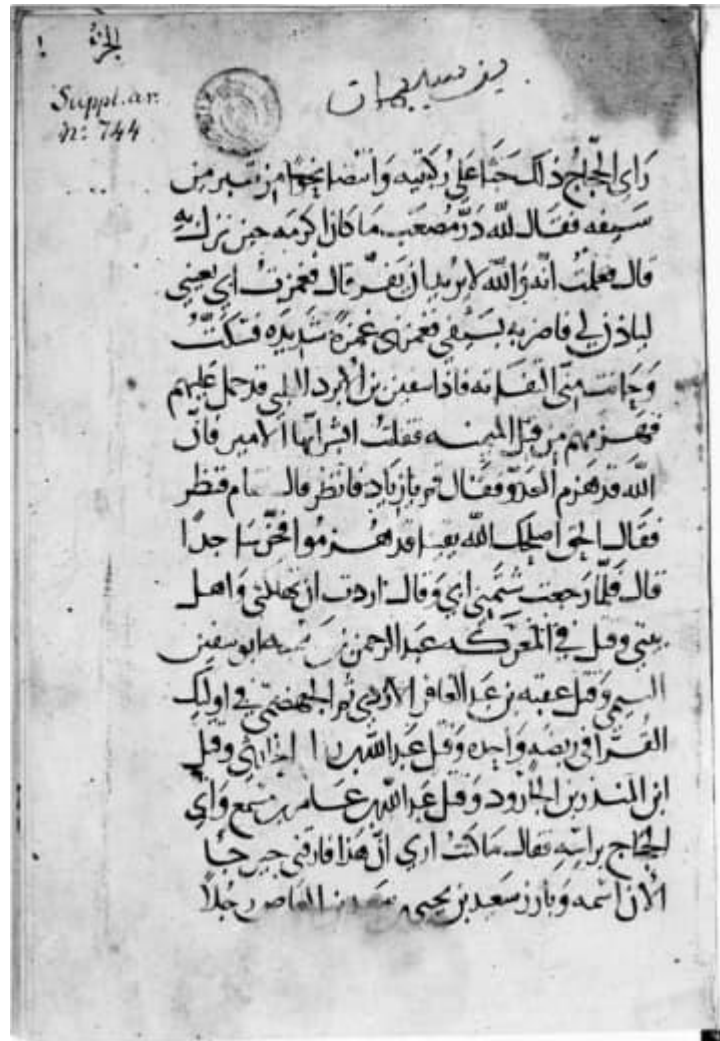 الجزء
Suppl. ar.
N: 744
راى الحجاج ذلك جثا على ركبتيه وانتضا نحوا من شبر من
سيفه فقال لله در مصعب ما كان اكرمه حين نزل به
قال فعلمت انه والله لا يريد ان يفر قال فغمزت ابي بعيني
لياذن لي فاضربه بسيفي فغمزني غمزة شديده فسكنت
وحانت مني التفاته فاذا سفين بن الابرد الكلبي قد حمل عليهم
فهزمهم من قبل الميمنه فقلت ابشر ايها الامير فان
الله قد هزم العدو فقال قم يازياد فانظر قال فقام فنظر
فقال الحق اصلحك الله يقينا قد هزموا فخر ساجدا
قال فلما رجعت شتمني ابي وقال اردت ان تهلكني واهل
بيتي وقتل في المعركه عبد الرحمن بن ابو سفين
السهمي وقتل عقبه بن عبد الغافر الازدي ثم الجهضمي في اوليك
القرا في ربضه واحده وقتل عبد الله بن وقتل
ابن المنذر بن الجارود وقتل عبد الله بن عامر بن مسمع واتي
الحجاج براسه فقال ما كنت ارى ان هذا فارقني حتى جا
الان اسمه وبارز سعيد بن يحيى بن سعيد بن العاص رجلا